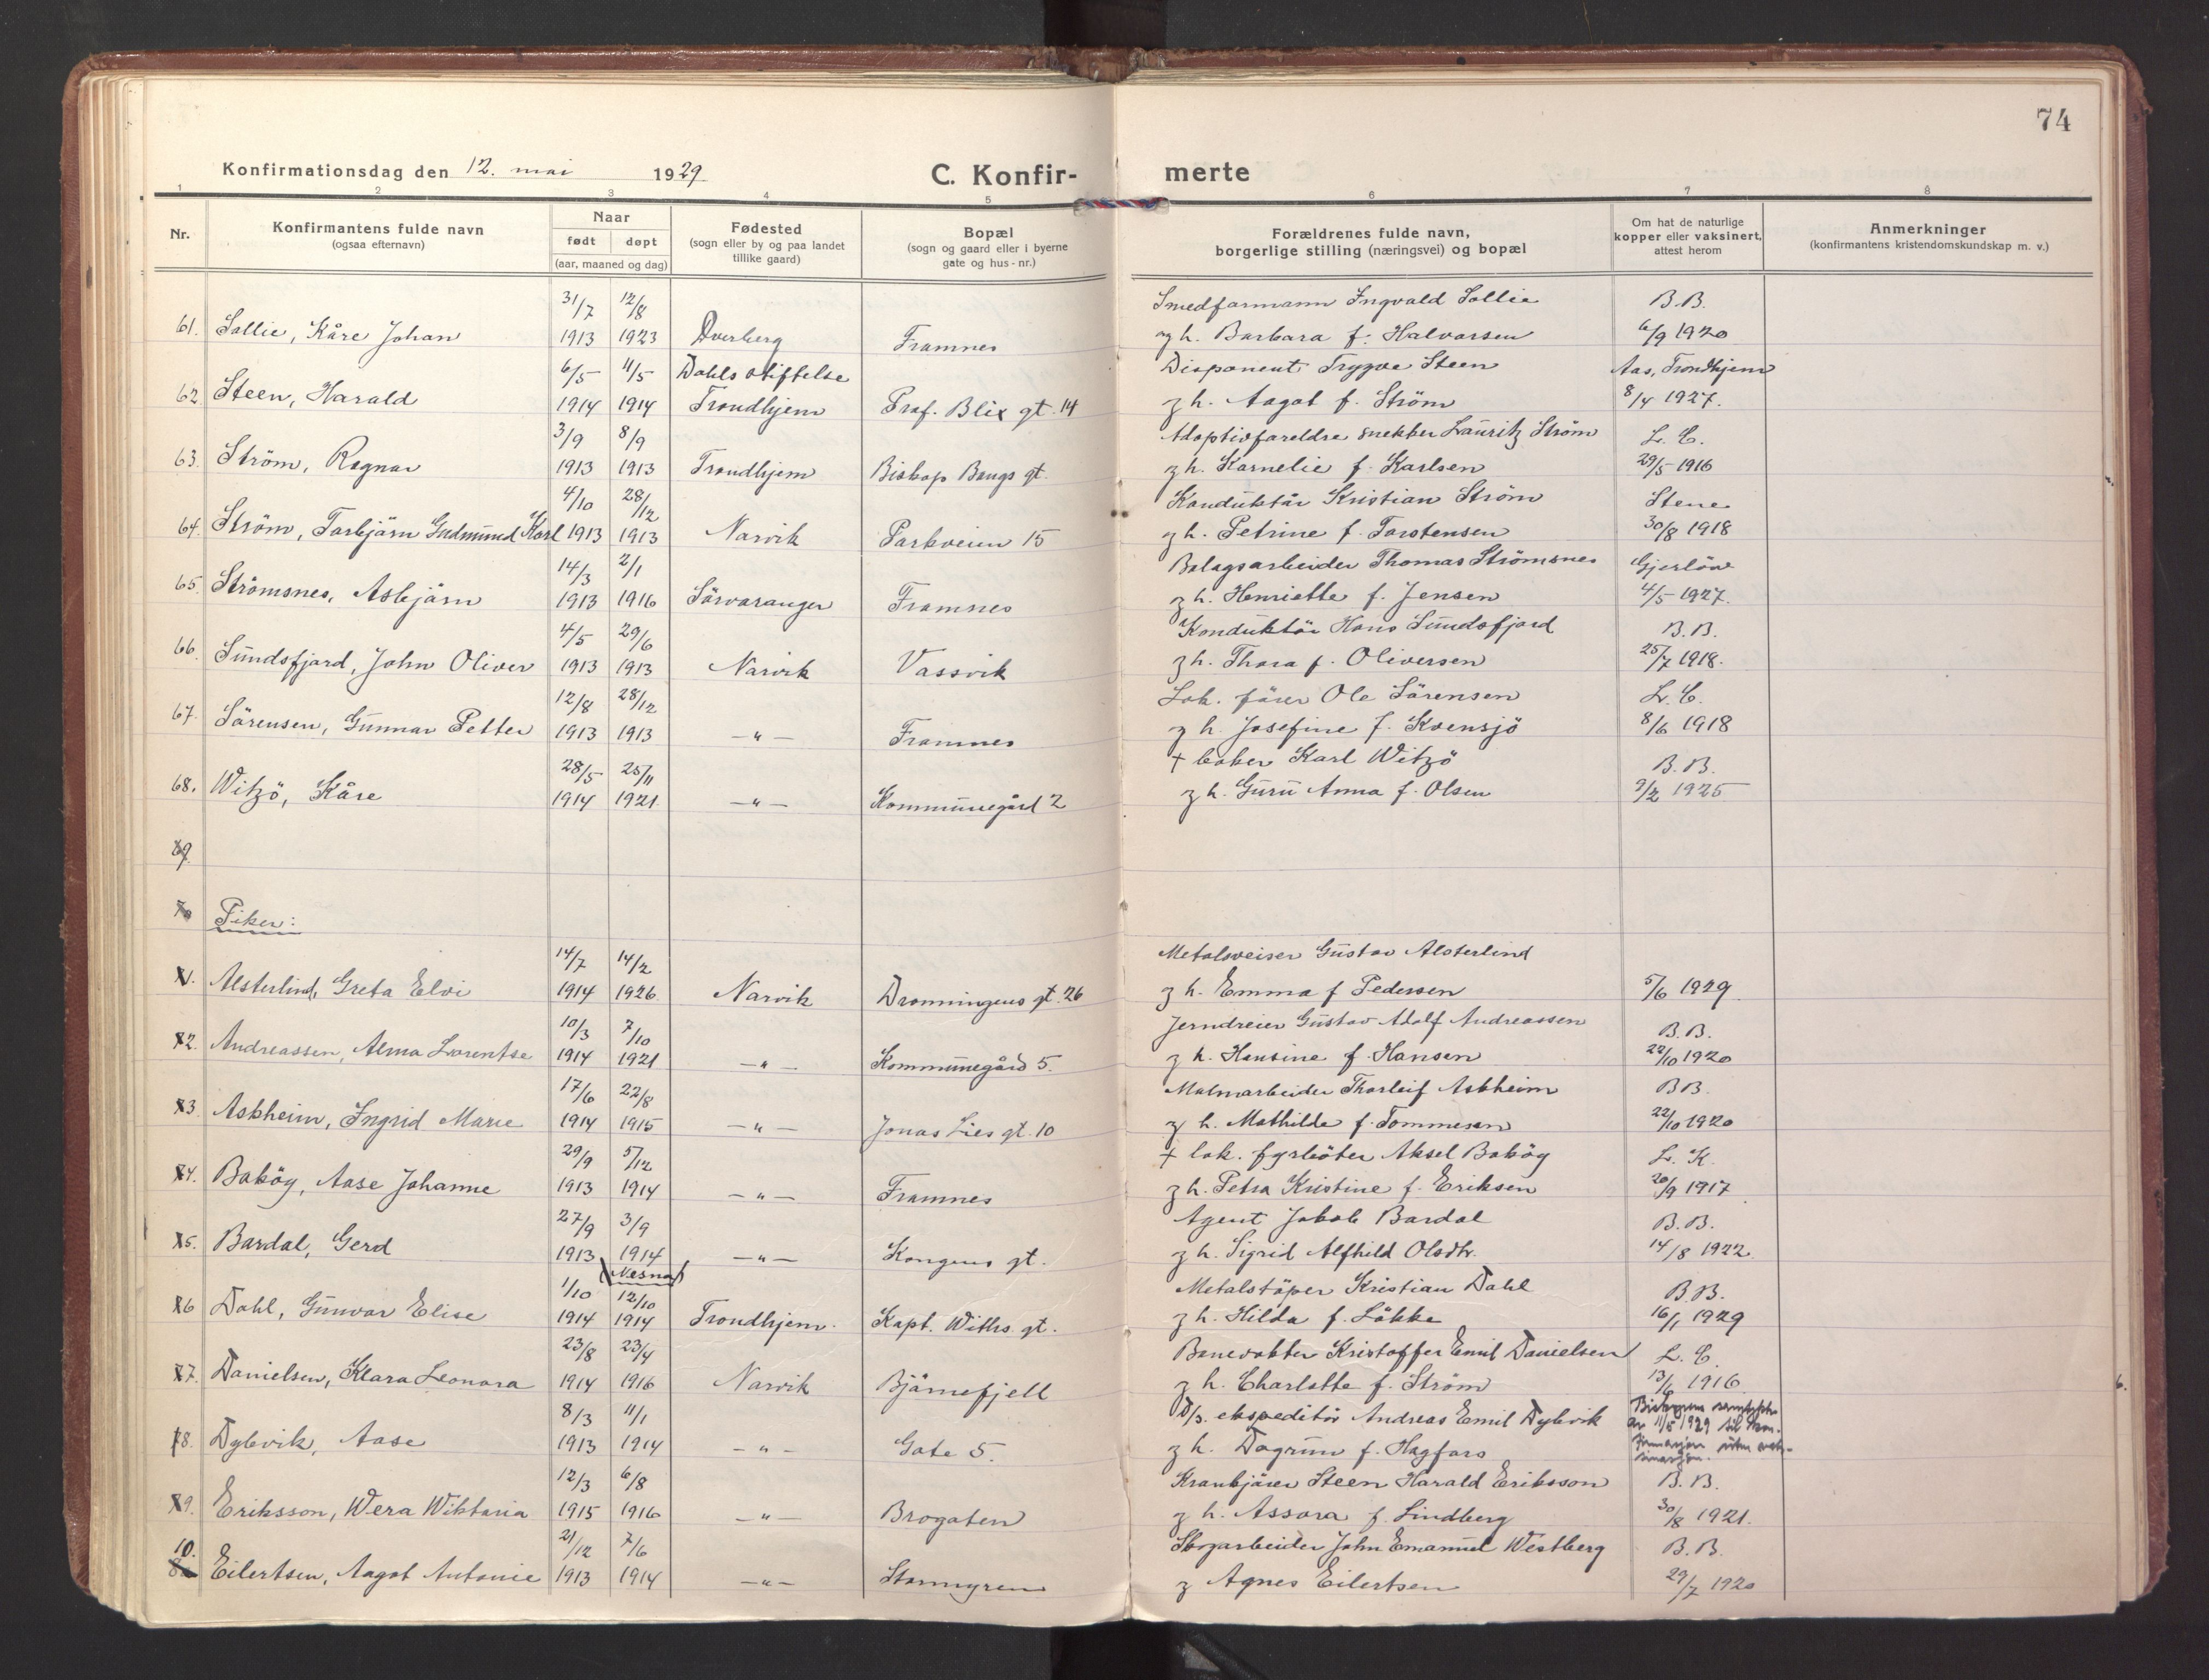 74
Konfirmationsdag den 12. mai 1929 C. Konfir- merte
1 2 3 4 5 6 7 8
Nr.
Konfirmantens fulde navn
(ogsaa efternavn)
Naar
født døpt
(aar, maaned og dag)
Fødested
(sogn eller by og paa landet
tillike gaard)
Bopæl
(sogn og gaard eller i byerne
gate og hus-nr.)
Forældrenes fulde navn,
borgerlige stilling (næringsvei) og bopæl
Om hat de naturlige
kopper eller vaksinert,
attest herom
Anmerkninger
(konfirmantens kristendomskundskap m. v.)
31/7 12/8 Smedformann Ingvald Sollie B.B.
61. Sollie, Kåre Johan 1913 1923 Dverberg Framnes og h. Barbara f. Halvorsen 6/9 1920
6/5 11/5 Dahls stiftelse Disponent Trygve Steen Aas, Trondhjem
62. Steen, Harald 1914 1914 Trondhjem Prof. Blix gt. 14 og h. Aagot f. Ström 8/4 1927.
3/9 8/9 Adoptivforeldre snekker Lauritz Ström L. C.
63. Ström, Ragnar 1913 1913 Trondhjem Biskop Bangs gt. og h. Kornelie f. Karlsen 29/5 1916
4/10 28/12 Konduktör Kristian Ström Stene
64. Ström, Torbjörn Gudmund Karl 1913 1913 Narvik Parkveien 15 og h. Petrine f. Torstensen 30/8 1918
14/3 2/1 Bolagsarbeider Thomas Strömsnes Gjerlöw
65. Strömsnes, Asbjörn 1913 1916 Sörvaranger Framnes og h. Henriette f. Jensen 4/5 1927.
4/5 29/6 Konduktör Hans Sundsfjord B.B.
66. Sundsfjord, John Oliver 1913 1913 Narvik Vassvik og h. Thora f. Oliversen 25/7 1918.
12/8 28/12 Lok. förer Ole Sörensen L. C.
67. Sörensen, Gunnar Petter 1913 1913 —"— Framnes og h. Josefine f. Kvensjö 8/6 1918
28/5 25/11 + baker Karl Witzö B.B.
68. Witzö, Kåre 1914 1921. —"— Kommunegård 2 og h. Guru Anna f. Olsen 9/2 1925
69
70 Piker:
14/7 14/2 Metalsveiser Gustav Alsterlind
1. Alsterlind, Greta Elvi 1914 1926. Narvik Dronningens gt. 26 og h. Emma f Pedersen 5/6 1929.
10/3 7/10 Jerndreier Gustav Adolf Andreassen B.B.
2. Andreassen, Alma Lorentse 1914 1921 —"— Kommunegård 5. og h. Hansine f. Hansen 22/10 1920
17/6 22/8 Malmarbeider Thorleif Askheim BB.
3. Askheim, Ingrid Marie 1914 1915 —"— Jonas Lies gt. 10 og h. Mathilde f. Tommesen 22/10 1920
29/9 5/12 + lok. fyrböter Aksel Bakög L. K.
4. Bakög, Aase Johanne 1913 1914 —"— Framnes og h. Petra Kristine f. Eriksen 20/9 1917
27/9 3/9 Agent Jakob Bardal B.B.
5. Bardal, Gerd 1913 1914 —"— Kongens gt. og h. Sigrid Alfhild Olsdtr. 14/8 1922.
(Nesna)
1/10 12/10 Metalstöper Kristian Dahl B.B.
6 Dahl, Gunvor Elise 1914 1914 Trondhjem. Kapt. Withs gt. og h. Hilda f. Lökke 16/1 1929
23/8 23/4 Banevokter Kristoffer Emil Danielsen L. C.
7. Danielsen, Klara Leonora 1914 1916 Narvik Björnefjell og h. Charlotte f. Ström 13/6 1916.
8/3 11/1 D/S. ekspeditör Andreas Emil Dybvik Biskopens samtykke
av 11/5 1929 til kon-
8. Dybvik, Aase 1913 1914 —"— Gate 5. og h. Dagrun f. Hagfors firmasjon uten vak-
sinasjon.
12/3 6/8 Krankjörer Steen Harald Eriksson B.B.
9. Eriksson, Wera Wiktoria 1915 1916 —"— Brogaten og h. Assora f. Lindberg 30/8 1921.
21/12 7/6 Skogarbeider John Emanuel Westberg B.B.
10. Eilertsen, Aagot Antonie 1913 1914 —"— Stormyren og Agnes Eilertsen 29/7 1920